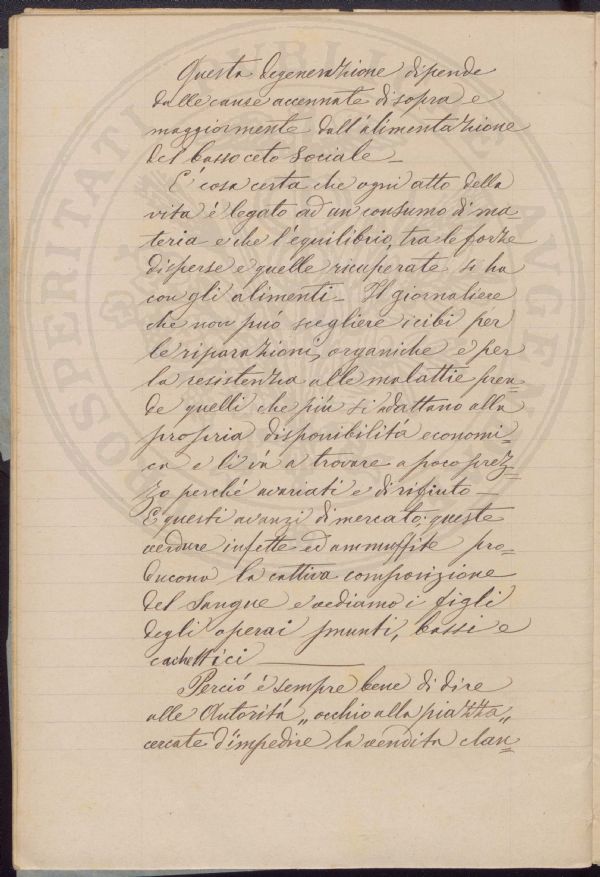 Questa degenerazione dipende
dalle cause accennate di sopra e
maggiormente dall'alimentazione
del basso ceto sociale_
E' cosa certa che ogni atto della
vita é legato ad un consumo di ma=
teria e che l'equilibrio, tra le forze
disperse e quelle ricuperate si ha
con gli alimenti_ Il giornaliere
che non puó scegliere i cibi per
le riparazioni organiche e per
la resistenza alle malattie pren=
de quelli che piú si adattano alla
propria disponibilitá economi=
ca e li vá a trovare a poco prez=
zo perché avariati e di rifiuto_
E questi avanzi di mercato; queste
verdure infette ed ammuffite pro=
ducono la cattiva composizione
del sangue e vediamo i figli
degli operai smunti, bassi e
cachettici_
Perció é sempre bene di dire
alle Autoritá „occhio alla piazza„
cercate d'impedire la vendita clan=
PROSPERITATI PUBLICAE AUGEN